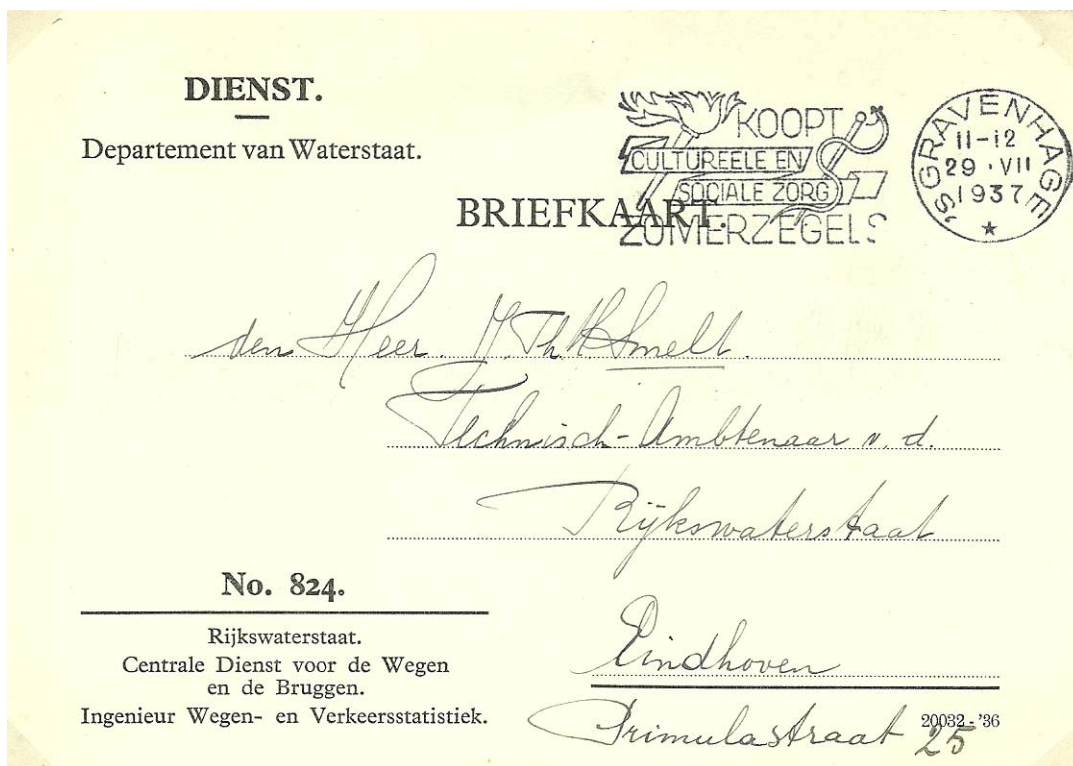 DIENST.
Departement van Waterstaat.
KOOPT
CULTUREELE EN
SOCIALE ZORG
ZOMERZEGELS
'SGRAVENHAGE
11-12
29·VII
1937
BRIEFKAART.
den Heer. Th. Smelt.
Technisch-Ambtenaar v. d.
Rijkswaterstaat
Eindhoven
Primulastraat 25
No. 824.
Rijkswaterstaat.
Centrale Dienst voor de Wegen
en de Bruggen.
Ingenieur Wegen- en Verkeersstatistiek.
20032 - '36